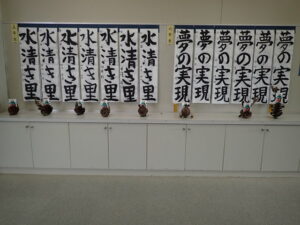 水清き里
水清き里
水清き里
水清き里
水清き里
水清き里
水清き里
夢の実現
夢の実現
夢の実現
夢の実現
夢の実現
夢の実現